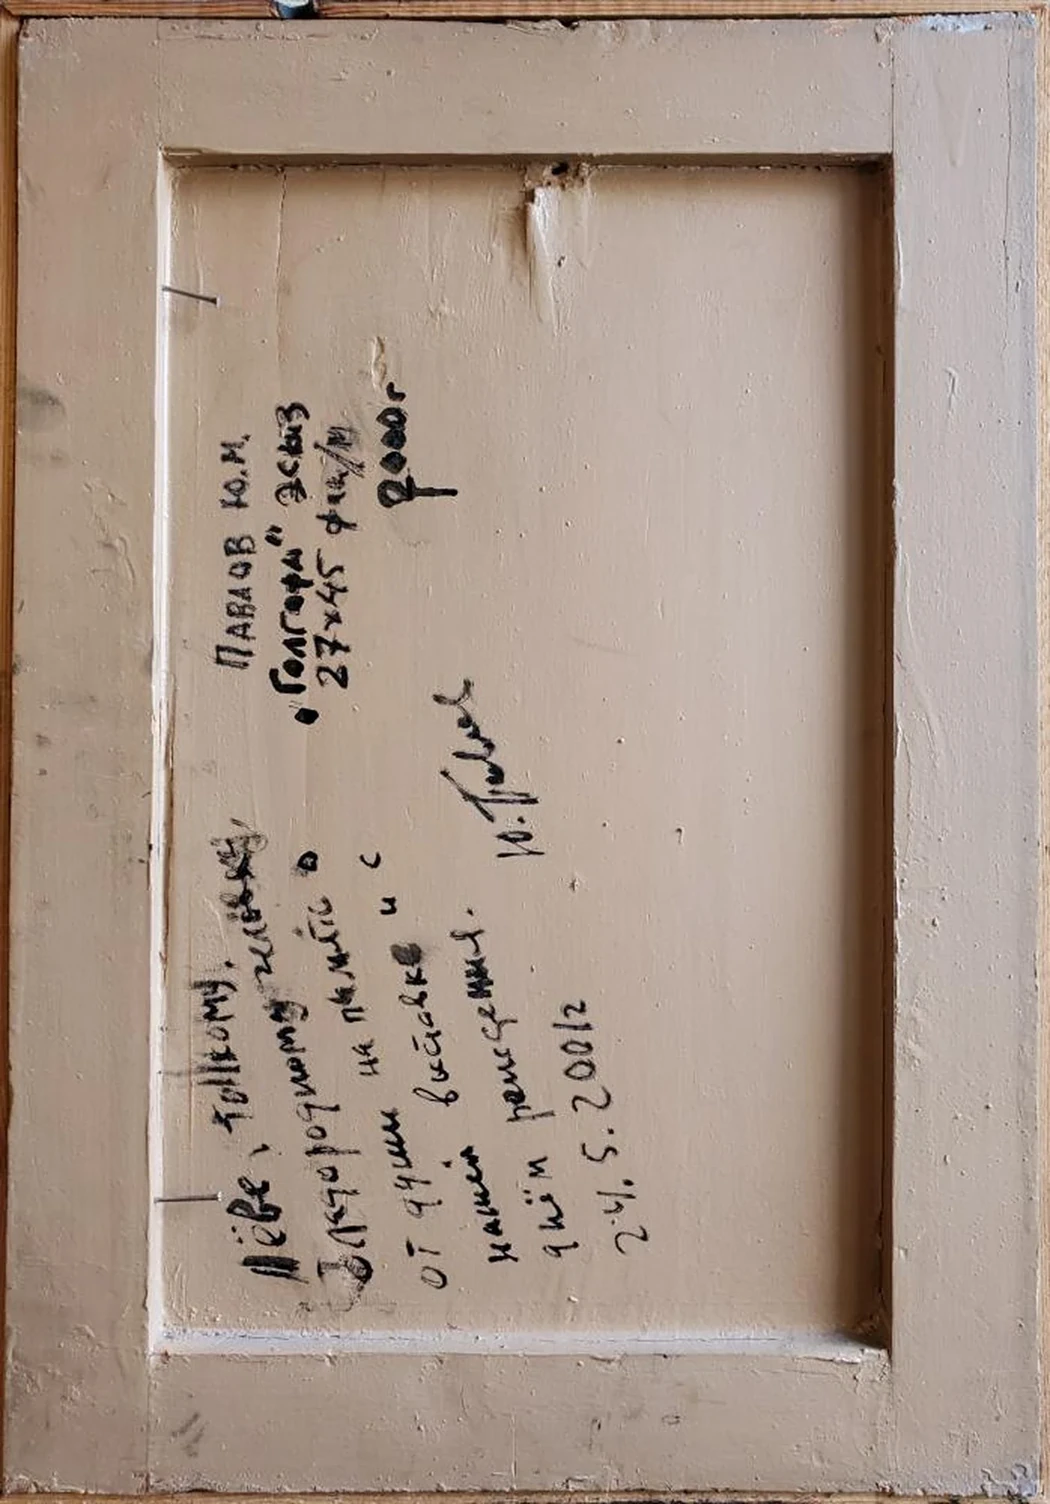 ПАВЛОВ Ю.М.
"Голгофа" эскиз
27х45 фан/м
2000г
Лёве, Толкому.
Благородному человеку,
на память о
от души
нашей выставке и с
днём рождения.
24.5.2001г
Ю. Павлов